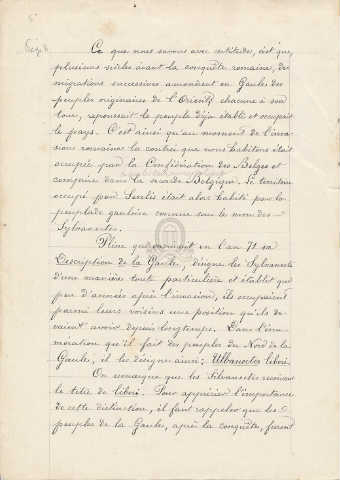 Ce que nous savons avec certitude, c'est que,
plusieurs siècles avant la conquête romaine, des
migrations successives amenèrent en Gaule des
peuples originaires de l'Orient, chacune à son
tour, repoussait le peuple déjà établi et occupait
le pays. C'est ainsi qu'au moment de l'inva-
sion romaine la contrée que nous habitons était
occupée par la Confédération des Belges et
comprise dans la Gaule Belgique. Le territoire
occupé par Senlis était alors habité par la
peuplade gauloise connue sous le nom des
Sylvanectes.
Pline qui écrivait en l'an 71 sa
Description de la Gaule, désigne les Sylvanectes
d'une manière toute particulière et établit que
peu d'années après l'invasion, ils occupaient
parmi leurs voisins une position qu'ils de-
vaient avoir depuis longtemps. Dans l'énu-
mération qu'il fait des peuples du Nord de la
Gaule, il les désigne ainsi: Ulbanectes liberi.
On remarque que les Silvanectes reçoivent
le titre de liberi. Pour apprécier l'importance
de cette distinction, il faut rappeler que les
peuples de la Gaule, après la conquête, furent